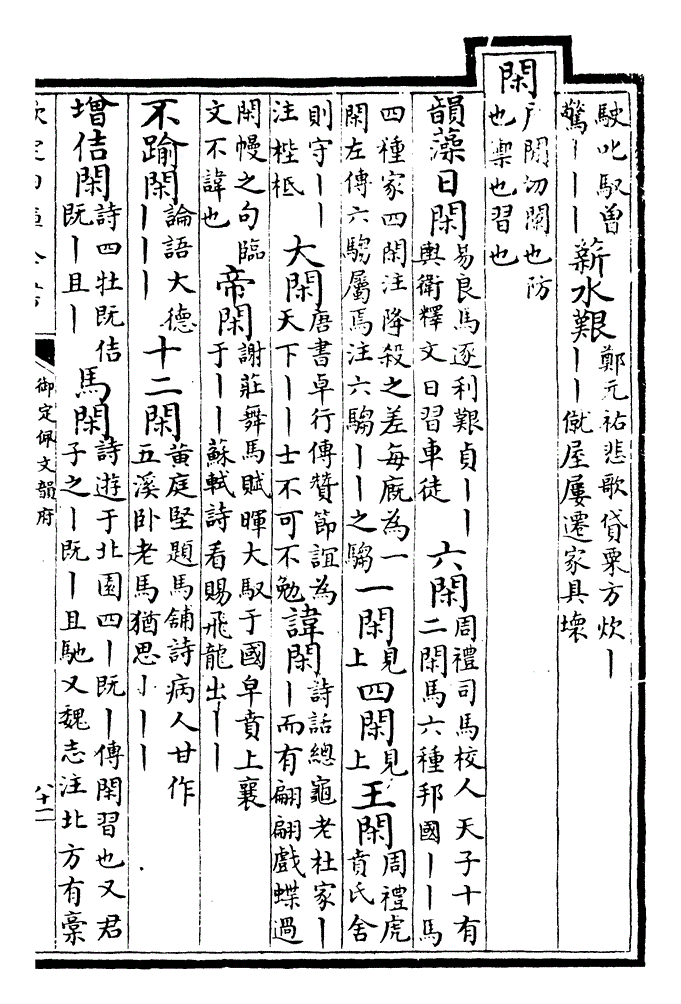 駛叱馭曾驚丨丨丨薪水艱鄭元祐悲歌貸粟方炊丨丨丨僦屋屢遷家具壊
閑户閒切闌也防也禦也習也
韻藻日閑易良馬逐利艱貞丨丨輿衛釋文日習車徒六閑周禮司馬校人天子十有二閑馬六種邦國丨丨馬
四種家四閑注降殺之差每廐為一閑左傳六騶屬焉注六騶丨丨之騶一閑見上四閑見上王閑周禮虎賁氏舍
則守丨丨注梐柢大閑唐書卓行傳贊節誼為天下丨丨士不可不勉諱閑詩話總龜老杜家丨丨而有翩翩戲蝶過
閑幔之句臨文不諱也帝閑謝莊舞馬賦暉大馭于國皁賁上襄于丨丨蘇軾詩看賜飛龍出丨丨
不踰閑論語大德丨丨丨十二閑黄庭堅題馬舖詩病人甘作五溪卧老馬猶思丨丨丨
增佶閑詩四牡既佶既丨且丨馬閑詩遊于北園四丨既丨傳閑習也又君子之丨既丨且馳又魏志注北方有槀
欽定四庫全書
御定佩文韻府
八十二